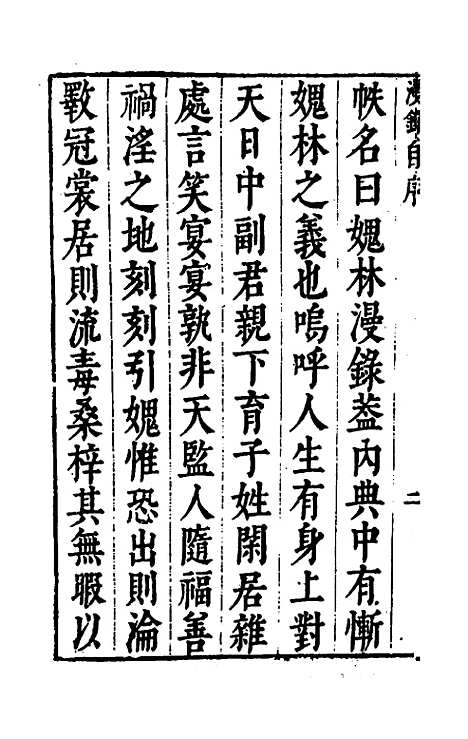 漫錄自序
二
帙名曰媿林漫錄葢內典中有慚
媿林之義也嗚呼人生有身上對
天日中副君親下育子姓閑居雜
處言笑宴宴孰非天監人隨福善
禍淫之地刻刻引媿惟恐出則淪
斁冠裳居則流毒桑梓其無暇以